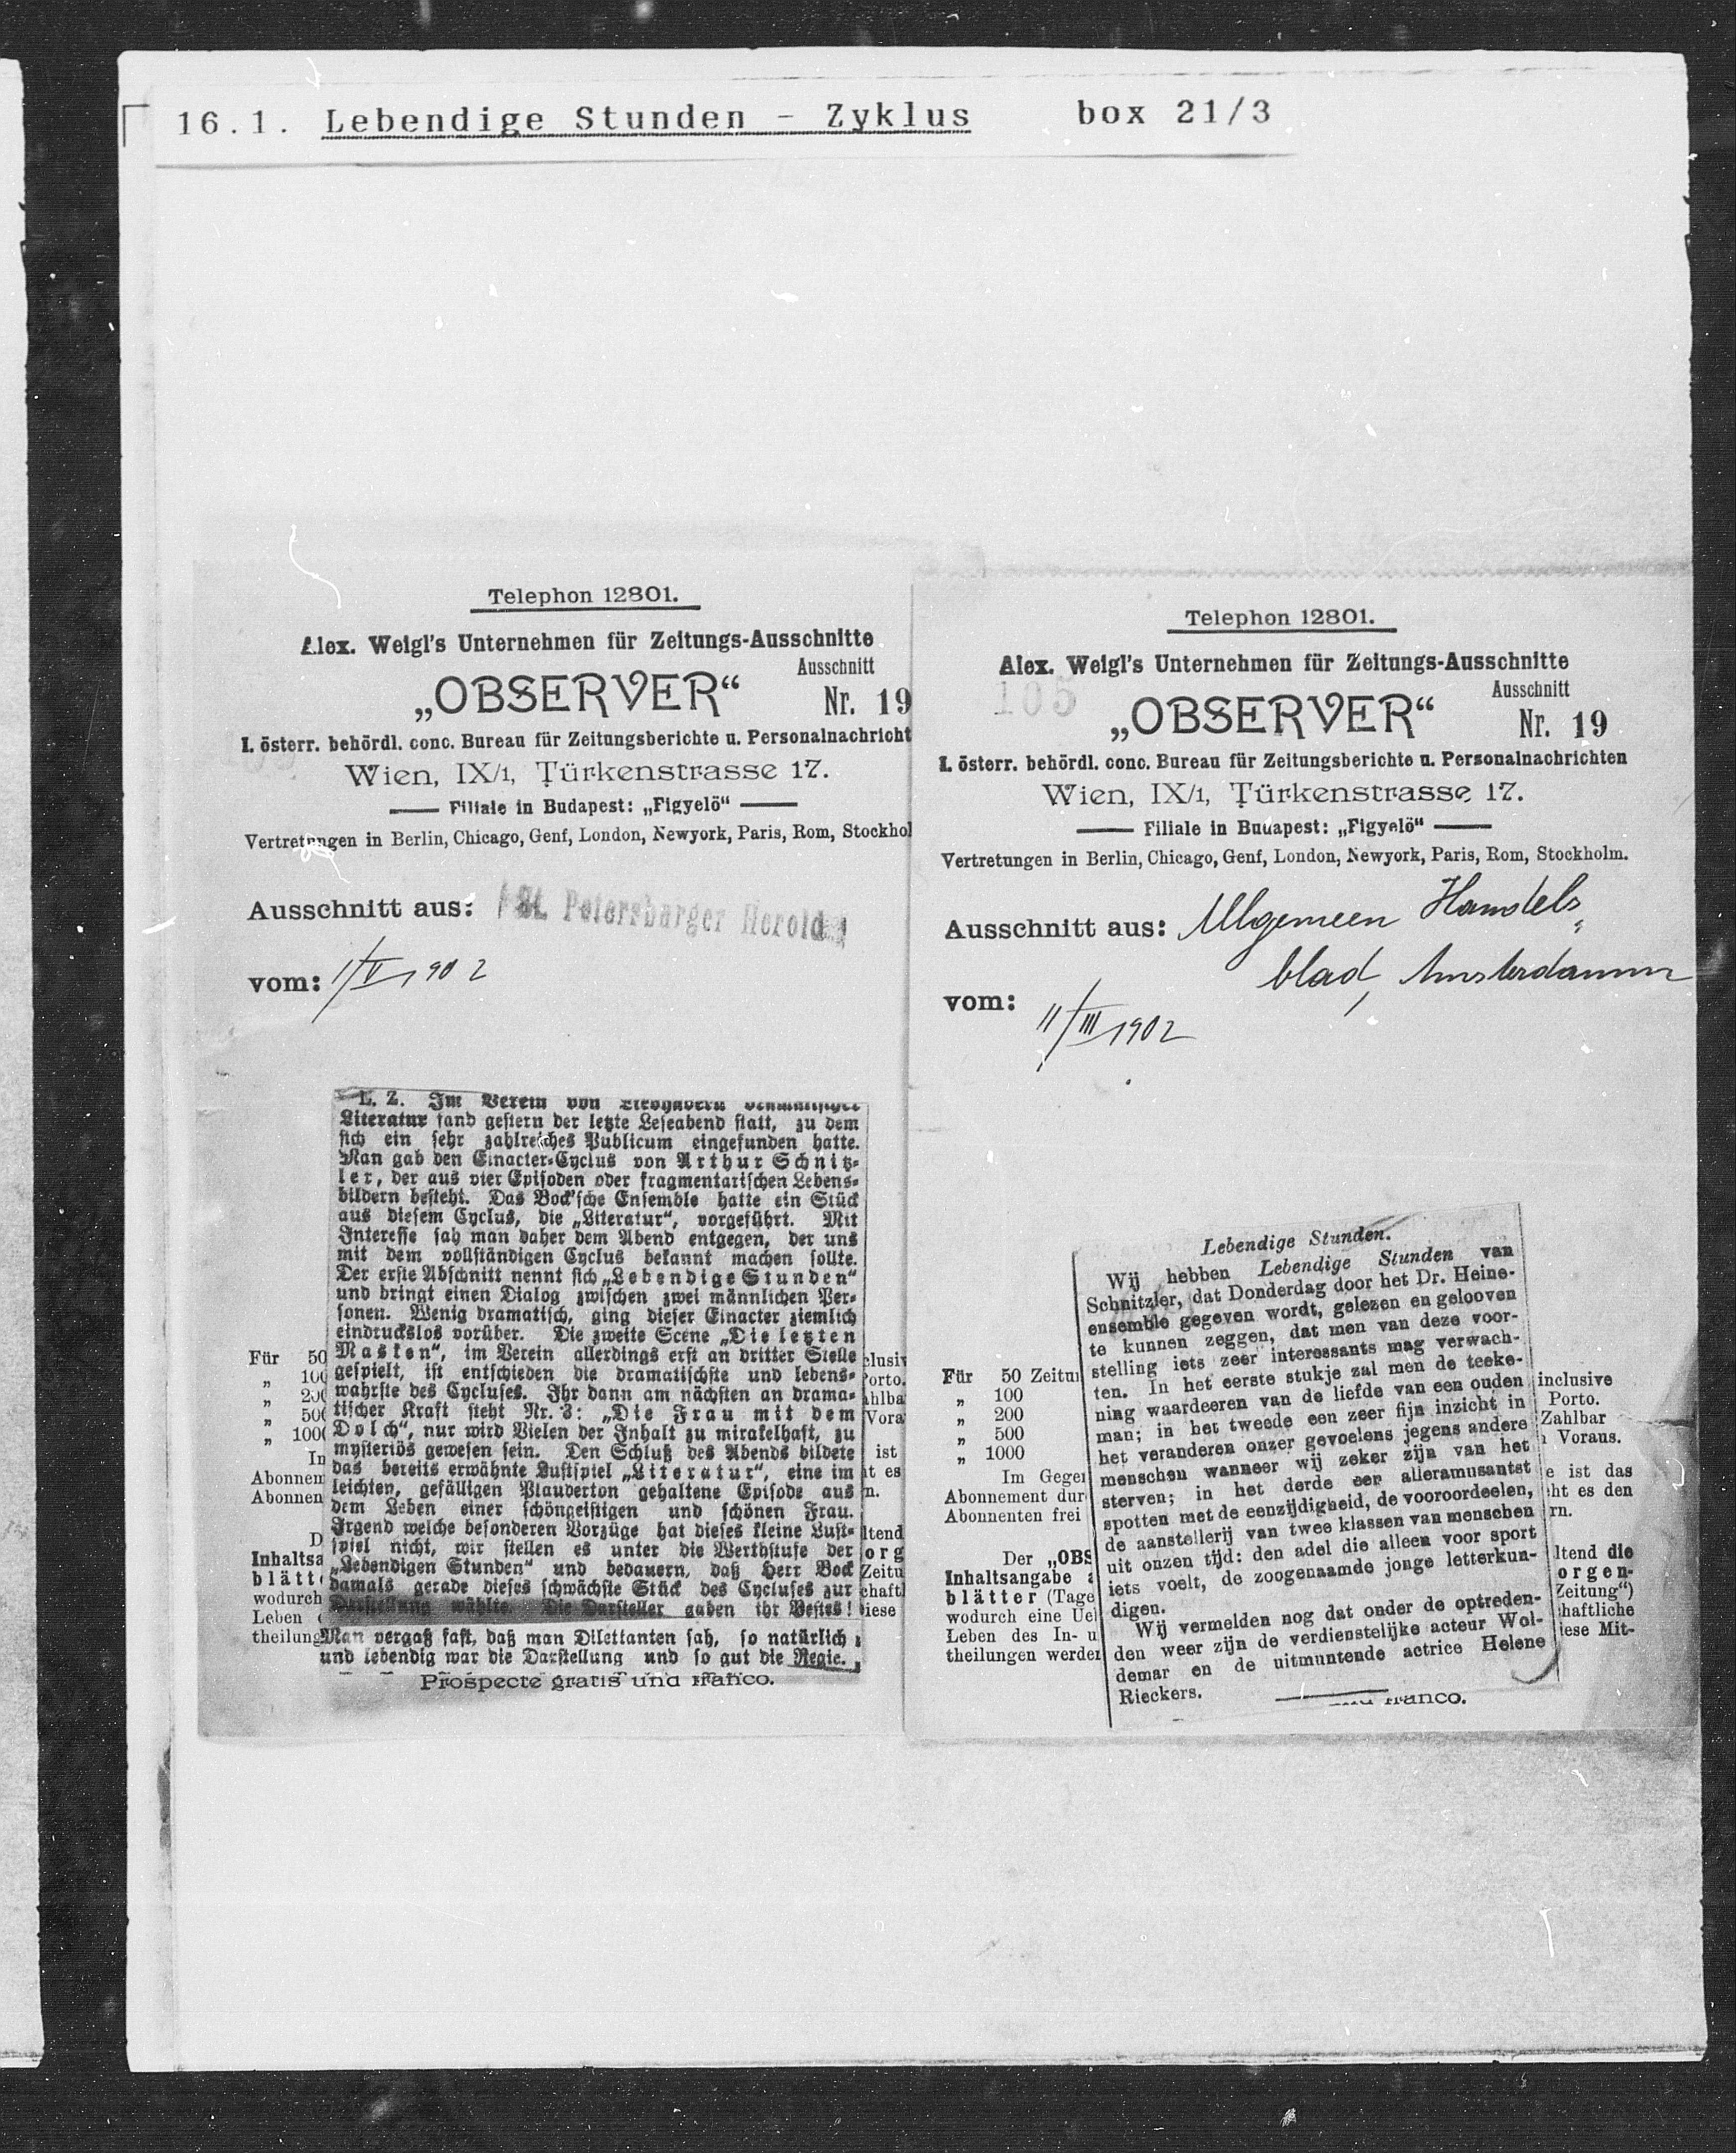 16.1. Lebendige Stunden - Zyklus box 21/3
Telephon 12801.
Alex. Weigl's Unternehmen für Zeitungs-Ausschnitte
Ausschnitt
„OBSERVER“ Nr. 19
I. österr. behördl. conc. Bureau für Zeitungsberichte u. Personalnachricht
Wien, IX/1, Türkenstrasse 17.
Filiale in Budapest: „Figyelö“
Vertretungen in Berlin, Chicago, Genf, London, Newyork, Paris, Rom, Stockhol
Ausschnitt aus: St. Petersburger Herold
vom: 1/V 1902
L. Z. Im Verein von
Literatur fand gestern der letzte Leseabend statt, zu dem
sich ein sehr zahlreiches Publicum eingefunden hatte.
Man gab den Einacter-Cyclus von Arthur Schnitz-
ler, der aus vier Episoden oder fragmentarischen Lebens-
bildern besteht. Das Bock'sche Ensemble hatte ein Stück
aus diesem Cyclus, die „Literatur“, vorgeführt. Mit
Interesse sah man daher dem Abend entgegen, der uns
mit dem vollständigen Cyclus bekannt machen sollte.
Der erste Abschnitt nennt sich „Lebendige Stunden“
und bringt einen Dialog zwischen zwei männlichen Per-
sonen. Wenig dramatisch, ging dieser Einacter ziemlich
eindruckslos vorüber. Die zweite Scene „Die letzten
Masken“, im Verein allerdings erst an dritter Stelle
gespielt, ist entschieden die dramatischste und lebens-
wahrste des Cycluses. Ihr dann am nächsten an drama-
tischer Kraft steht Nr. 3: „Die Frau mit dem
Dolch“, nur wird Vielen der Inhalt zu mirakelhaft, zu
mysteriös gewesen sein. Den Schluß des Abends bildete
das bereits erwähnte Lustspiel „Literatur“, eine im
leichten, gefälligen Plauderton gehaltene Episode aus
dem Leben einer schöngeistigen und schönen Frau.
Irgend welche besonderen Vorzüge hat dieses kleine Lust-
spiel nicht, wir stellen es unter die Werthstufe der
„Lebendigen Stunden“ und bedauern, daß Herr Bock
damals gerade dieses schwächste Stück des Cycluses zur
Darstellung wählte. Die Darsteller gaben ihr Bestes!
Man vergaß fast, daß man Dilettanten sah, so natürlich
und lebendig war die Darstellung und so gut die Regie.
Für 50
„ 100
„ 200
„ 500
„ 1000
In
Abonnem
Abonnen
D
Inhaltsa
blätt
wodurch
Leben
theilung
clusiv
Porto.
ahlba
Vora
ist
t es
n.
ltend
org
Zeitu
chaftl
diese
Prospecte gratis und franco.
Telephon 12801.
Alex. Weigl's Unternehmen für Zeitungs-Ausschnitte
105
Ausschnitt
„OBSERVER“ Nr. 19
I. österr. behördl. conc. Bureau für Zeitungsberichte u. Personalnachrichten
Wien, IX/1, Türkenstrasse 17.
Filiale in Budapest: „Figyelö“
Vertretungen in Berlin, Chicago, Genf, London, Newyork, Paris, Rom, Stockholm.
Ausschnitt aus: Allgemeen Handels-
blad, Amsterdamm
vom: 11/III 1902
Lebendige Stunden.
Wij hebben Lebendige Stunden van
Schnitzler, dat Donderdag door het Dr. Heine-
ensemble gegeven wordt, gelezen en gelooven
te kunnen zeggen, dat men van deze voor-
stelling iets zeer interessants mag verwach-
ten. In het eerste stukje zal men de teeke-
ning waardeeren van de liefde van een ouden
man; in het tweede een zeer fijn inzicht in
het veranderen onzer gevoelens jegens andere
menschen wanneer wij zeker zijn van het
sterven; in het derde een alleramusantst
spotten met de eenzijdigheid, de vooroordeelen,
de aanstellerij van twee klassen van menschen
uit onzen tijd: den adel die alleen voor sport
iets voelt, de zoogenaamde jonge letterkun-
digen.
Wij vermelden nog dat onder de optreden-
den weer zijn de verdienstelijke acteur Wol-
demar en de uitmuntende actrice Helene
Rieckers.
Für 50 Zeitu
„ 100
„ 200
„ 500
„ 1000
Im Gege
Abonnement dur
Abonnenten frei
Der „OBS
Inhaltsangabe
blätter (Tage
wodurch eine Ue
Leben des In- u
theilungen werde
inclusive
Porto.
Zahlbar
Voraus.
e ist das
ht es den
rn.
ltend die
orgen-
Zeitung“)
haftliche
iese Mit-
franco.